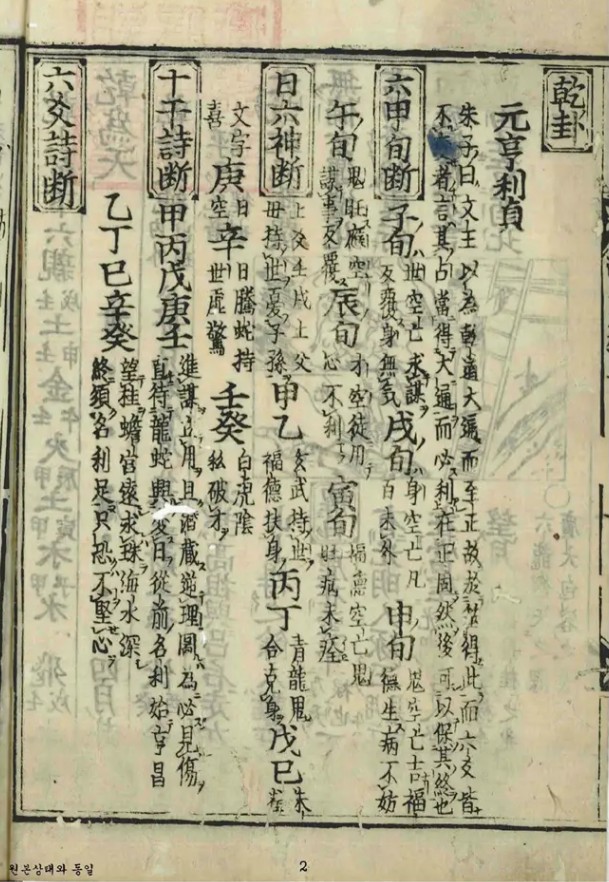 乾卦
元亨利貞
朱子曰文王以為乾道大通而至正故於筮得此而六爻皆
不變者言其占當得大通而必利在正固然後可以保其終也
六甲旬断 子旬 世空亡求謀
反覆身無気 戌旬 身空亡凡
百未外 申旬 鬼空亡吉福
徳生病不妨
午旬 鬼旺
謀事反覆 辰旬 才空徒用
心不利 寅旬 福無空亡鬼
旺病未痊
日六神断 上爻壬戌土父
母持世憂子孫 甲乙 玄武持世
福徳扶身 丙丁 青龍鬼
合克身 戊巳 朱
雀
文字
喜 庚 日
空 辛 日騰蛇持
世虚驚 壬癸 白虎陰
私破才
十干詩断 甲丙戊庚壬 進謀立用且潜蔵逆理圖為必見傷
直待龍蛇興変日従前名利始亨昌
六爻詩断 乙丁巳辛癸 望桂蟾宮遠求珠海水深
終須名利足只恐不堅心
원본상태와 동일
2